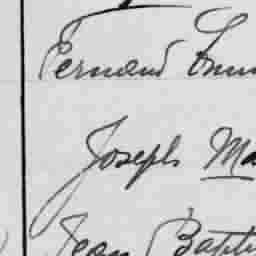 Fernand
Joseph Ma
Jean Bapti